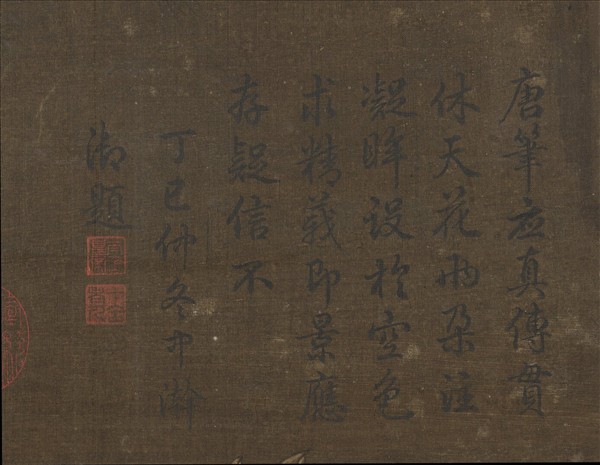 唐筆应真傳貫
休天花雨朶注
凝眸設於空色
求精義即景應
存疑信不
丁巳仲冬中澣
御題